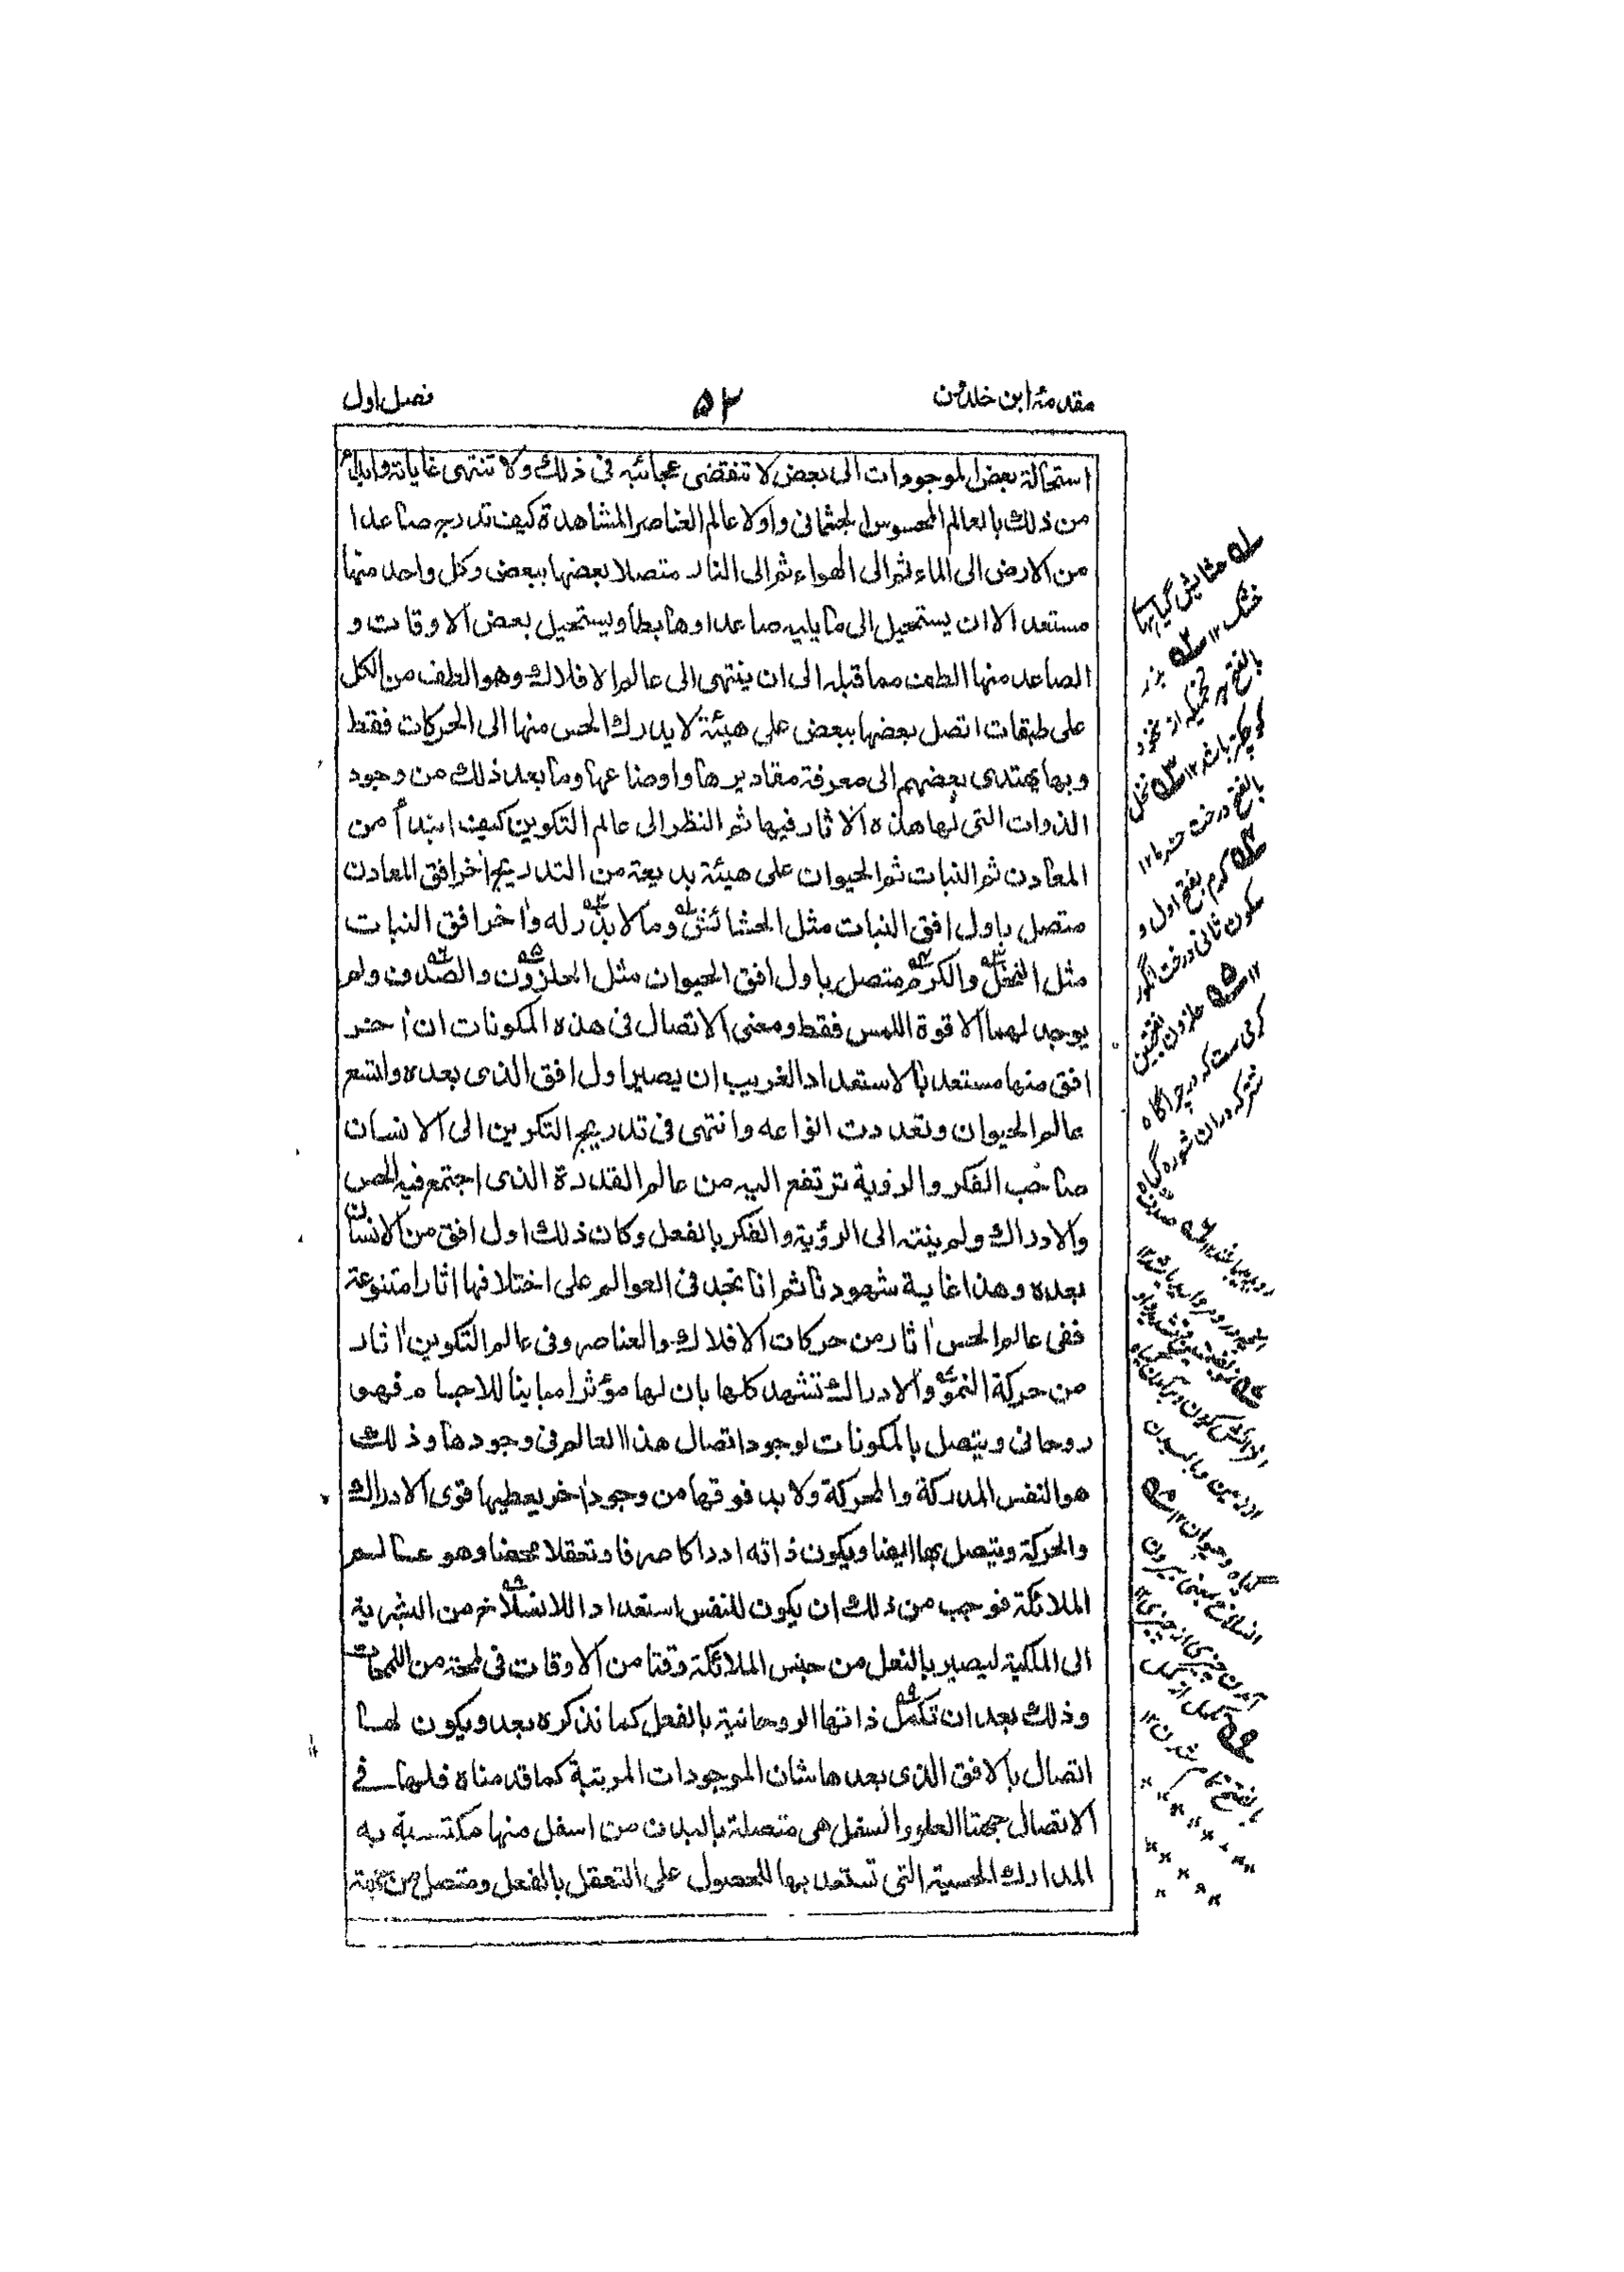 مقدمۂ ابن خلدون ۵۲ فصل اول
استحالة بعض الموجودات الى بعض لا تنقضى عجائبه فى ذلك ولا تنتهى غاياته وابدأ
من ذلك بالعالم المحسوس الجثمانى واولا عالم العناصر المشاهدة كيف تدرج صاعدا
من الارض الى الماء ثم الى الهواء ثم الى النار متصلا بعضها ببعض وكل واحد منها
مستعد الا ان يستحيل الى ما يليه صاعدا وهابطا ويستحيل بعض الاوقات و
الصاعد منها الطف مما قبله الى ان ينتهى الى عالم الافلاك وهو الطف من الكل
على طبقات اتصل بعضها ببعض على هيئة لا يدرك الحس منها الى الحركات فقط
وبها يهتدى بعضهم الى معرفة مقاديرها واوضاعها وما بعد ذلك من وجود
الذوات التى لها هذه الاثار فيها ثم النظر الى عالم التكوين كيف ابتدأ من
المعادن ثم النبات ثم الحيوان على هيئة بديعة من التدريج اٰخر افق المعادن
متصل باول افق النبات مثل الحشائش وما لا بذر له واٰخر افق النبات
مثل النخل والكرم متصل باول افق الحيوان مثل الحلزون والصدف ولم
يوجد لهما الا قوة اللمس فقط ومعنى الاتصال فى هذه المكونات ان اٰخر
افق منها مستعد بالاستعداد الغريب ان يصير اول افق الذى بعده واتسع
عالم الحيوان وتعددت انواعه وانتهى فى تدريج التكوين الى الانسان
صاحب الفكر والروية ترتفع اليه من عالم القدرة الذى اجتمع فيه الحس
والادراك ولم ينته الى الرؤية والفكر بالفعل وكان ذلك اول افق من الانسان
بعده وهذا غاية شهودنا ثم انا نجد فى العوالم على اختلافها اثارا متنوعة
ففى عالم الحس اٰثار من حركات الافلاك والعناصر وفى عالم التكوين اٰثار
من حركة النمو والادراك تشهد كلها بان لها مؤثرا مباينا للاجسام فهو
روحانى ويتصل بالمكونات لوجود اتصال هذا العالم فى وجودها وذلك
هو النفس المدركة والمحركة ولا بد فوقها من وجود اٰخر يعطيها قوى الادراك
والحركة ويتصل بها ايضا ويكون ذاته ادراكا صرفا وتعقلا محضا وهو عالم
الملائكة فوجب من ذلك ان يكون للنفس استعداد اللانسلاخ من البشرية
الى الملكية ليصير بالفعل من جنس الملائكة وقتا من الاوقات فى لمحة من اللمحات
وذلك بعد ان تكمل ذاتها الروحانية بالفعل كما نذكره بعد ويكون لها
اتصال بالافق الذى بعدها شان الموجودات المرتبة كما قدمناه فلها فى
الاتصال جهتا العلو والسفل هى متصلة بالبدن من اسفل منها مكتسبة به
المدارك الحسية التى تستعد بها للحصول على التعقل بالفعل ومتصل من جهة
حشايش گياہہا
خشک ۱۲ بزر
بالفتح ہر تخمیکہ از نخود
کوچکتر باشد ۱۲ نخل
بالفتح درخت خرما ۱۲
کرم بفتح اول و
سکون ثانی درخت انگور
۱۲ حلزون بفتحتین
کرمی ست کہ در چراگاہ
شتر کہ دران شورہ گیاہ